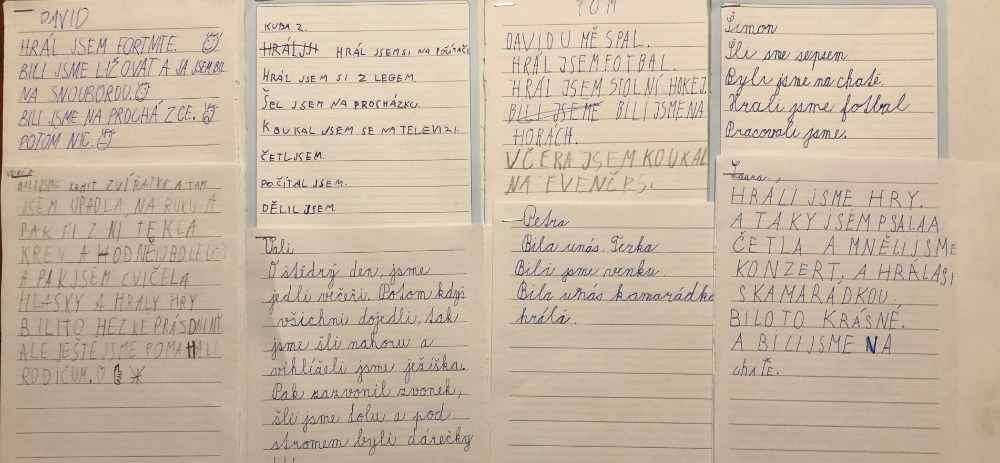 DAVID
HRÁL JSEM FORTNITE.
BILI JSME LIŽOVAT A JA JSEM BIL
NA SNOUBORDU
BILI JSME NA PROCHÁZCE.
POTOM NIC.
KUBA Z.
HRÁL JSEM SI NA POČÍTAČI
HRÁL JSEM SI Z LEGEM.
ŠEL JSEM NA PROCHÁZKU.
KOUKAL JSEM SE NA TELEVIZI.
ČETL JSEM.
POČÍTAL JSEM.
DĚLIL JSEM.
TOM
DAVID U MĚ SPAL.
HRÁL JSEM FOTBAL.
HRÁL JSEM STOLNÍ HOKEJ.
BILI JSEME BILI JSME NA
HORÁCH.
VČERA JSEM KOUKAL
NA EVENČRS.
Šimon
Šli sme sepsem.
Byli jsme na chatě.
Hrali jsme fotbal
Pracovali jsme.
BILI JSME KRMIT ZVÍŘÁTKA A TAM
JSEM UPADLA NA RUKU A
PAK MI Z NÍ TEKLA
KREV A HODNĚ
A PAK JSEM CVIČELA
HLÁSKY A HRALY HRY
BILI TO HEZKÉ PRÁSDNINY
ALE JEŠTĚ JSME POMAHALI
RODIČUM.
Vali
O štědrý den, jsme
jedli večeři. Potom když
všichni dojedli, tak
jsme šli nahoru a
vihlíželi jsme ježíška.
Pak zazvonil zvonek,
šli jsme dolu a pod
stromem byli dárečky
Petra
Bila unás. Terka
Bili jsme venku.
Bila unás kamarádka
hráli.
Laura,
HRÁLI JSME HRY.
A TAKY JSEM PSALA A
ČETLA A MNĚLI JSME
KONZERT, A HRÁLA SI
SKAMARÁDKOU.
BILO TO KRÁSNÉ.
A BILI JSME NA
CHATĚ.